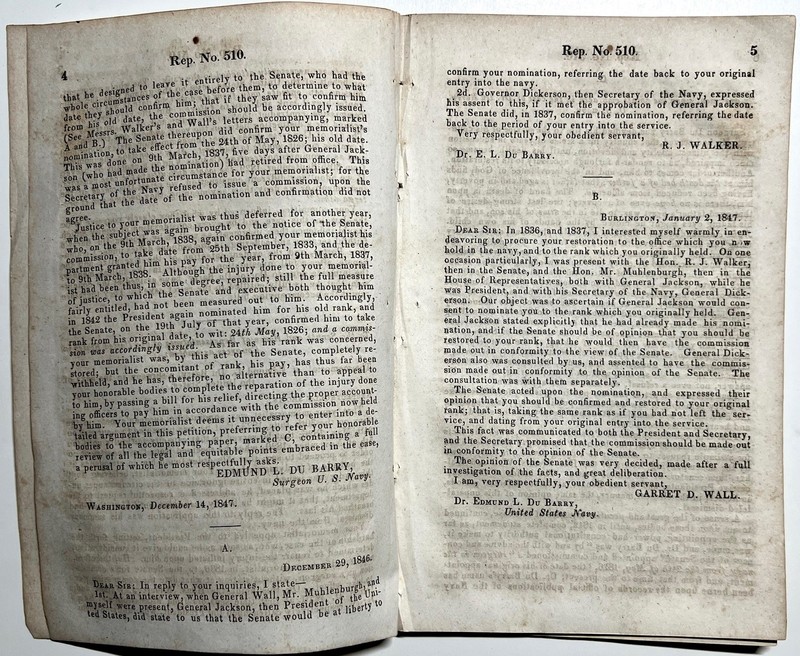 Rep. No. 510.
4
that he designed to leave it entirely to the Senate, who had the
whole circumstances of the case before them, to determine to what
date they should confirm him; that if they saw fit to confirm him
from his old date, the commission should be accordingly issued.
(See Messrs. Walker's and Wall's letters accompanying, marked
A and B.) The Senate thereupon did confirm your memorialist's
nomination, to take effect from the 24th of May, 1826; his old date.
This was done on 9th March, 1837, five days after General Jack-
son (who had made the nomination) had retired from office. This
was a most unfortunate circumstance for your memorialist; for the
Secretary of the Navy refused to issue a commission, upon the
ground that the date of the nomination and confirmation did not
agree.
Justice to your memorialist was thus deferred for another year,
when the subject was again brought to the notice of the Senate,
who, on the 9th March, 1838, again confirmed your memorialist his
commission, to take date from 25th September, 1833, and the de-
partment granted him his pay for the year, from 9th March, 1837,
to 9th March, 1838. Although the injury done to your memorial-
ist had been thus, in some degree, repaired; still the full measure
of justice, to which the Senate and executive both thought him
fairly entitled, had not been measured out to him. Accordingly,
in 1842 the President again nominated him for his old rank, and
the Senate, on the 19th July of that year, confirmed him to take
rank from his original date, to wit: 24th May, 1826; and a commis-
sion was accordingly issued. As far as his rank was concerned,
your memorialist was, by this act of the Senate, completely re-
stored; but the concomitant of rank, his pay, has thus far been
withheld, and he has, therefore, no alternative than to appeal to
your honorable bodies to complete the reparation of the injury done
to him, by passing a bill for his relief, directing the proper account-
ing officers to pay him in accordance with the commission now held
by him. Your memorialist deems it unnecessry to enter into a de-
tailed argument in this petition, preferring to refer your honorable
bodies to the accompanying paper, marked C, containing a full
review of all the legal and equitable points embraced in the case,
a perusal of which he most respectfully asks.
EDMUND L. DU BARRY,
Surgeon U. S. Navy.
WASHINGTON, December 14, 1847.
A.
DECEMBER 29, 1846.
DEAR SIR: In reply to your inquiries, I state—
1st. At an interview, when General Wall, Mr. Muhlenburgh, and
myself were present, General Jackson, then President of the Uni-
ted States, did state to us that the Senate would be at liberty to
Rep. No. 510.
5
confirm your nomination, referring the date back to your original
entry into the navy.
2d. Governor Dickerson, then Secretary of the Navy, expressed
his assent to this, if it met the approbation of General Jackson.
The Senate did, in 1837, confirm the nomination, referring the date
back to the period of your entry into the service.
Very respectfully, your obedient servant,
R. J. WALKER.
Dr. E. L. DU BARRY.
B.
BURLINGTON, January 2, 1847.
DEAR SIR: In 1836, and 1837, I interested myself warmly in en-
deavoring to procure your restoration to the office which you n w
hold in the navy, and to the rank which you originally held. On one
occasion particularly, I was present with the Hon. R. J. Walker,
then in the Senate, and the Hon. Mr. Muhlenburgh, then in the
House of Representatives, both with General Jackson, while he
was President, and with his Secretary of the Navy, General Dick-
erson. Our object was to ascertain if General Jackson would con-
sent to nominate you to the rank which you originally held. Gen-
eral Jackson stated explicitly that he had already made his nomi-
nation, and if the Senate should be of opinion that you should be
restored to your rank, that he would then have the commission
made out in conformity to the view of the Senate. General Dick-
erson also was consulted by us, and assented to have the commis-
sion made out in conformity to the opinion of the Senate. The
consultation was with them separately.
The Senate acted upon the nomination, and expressed their
opinion that you should be confirmed and restored to your original
rank; that is, taking the same rank as if you had not left the ser-
vice, and dating from your original entry into the service.
This fact was communicated to both the President and Secretary,
and the Secretary promised that the commission should be made out
in conformity to the opinion of the Senate.
The opinion of the Senate was very decided, made after a full
investigation of the facts, and great deliberation.
I am, very respectfully, your obedient servant,
GARRET D. WALL.
Dr. EDMUND L. DU BARRY,
United States Navy.